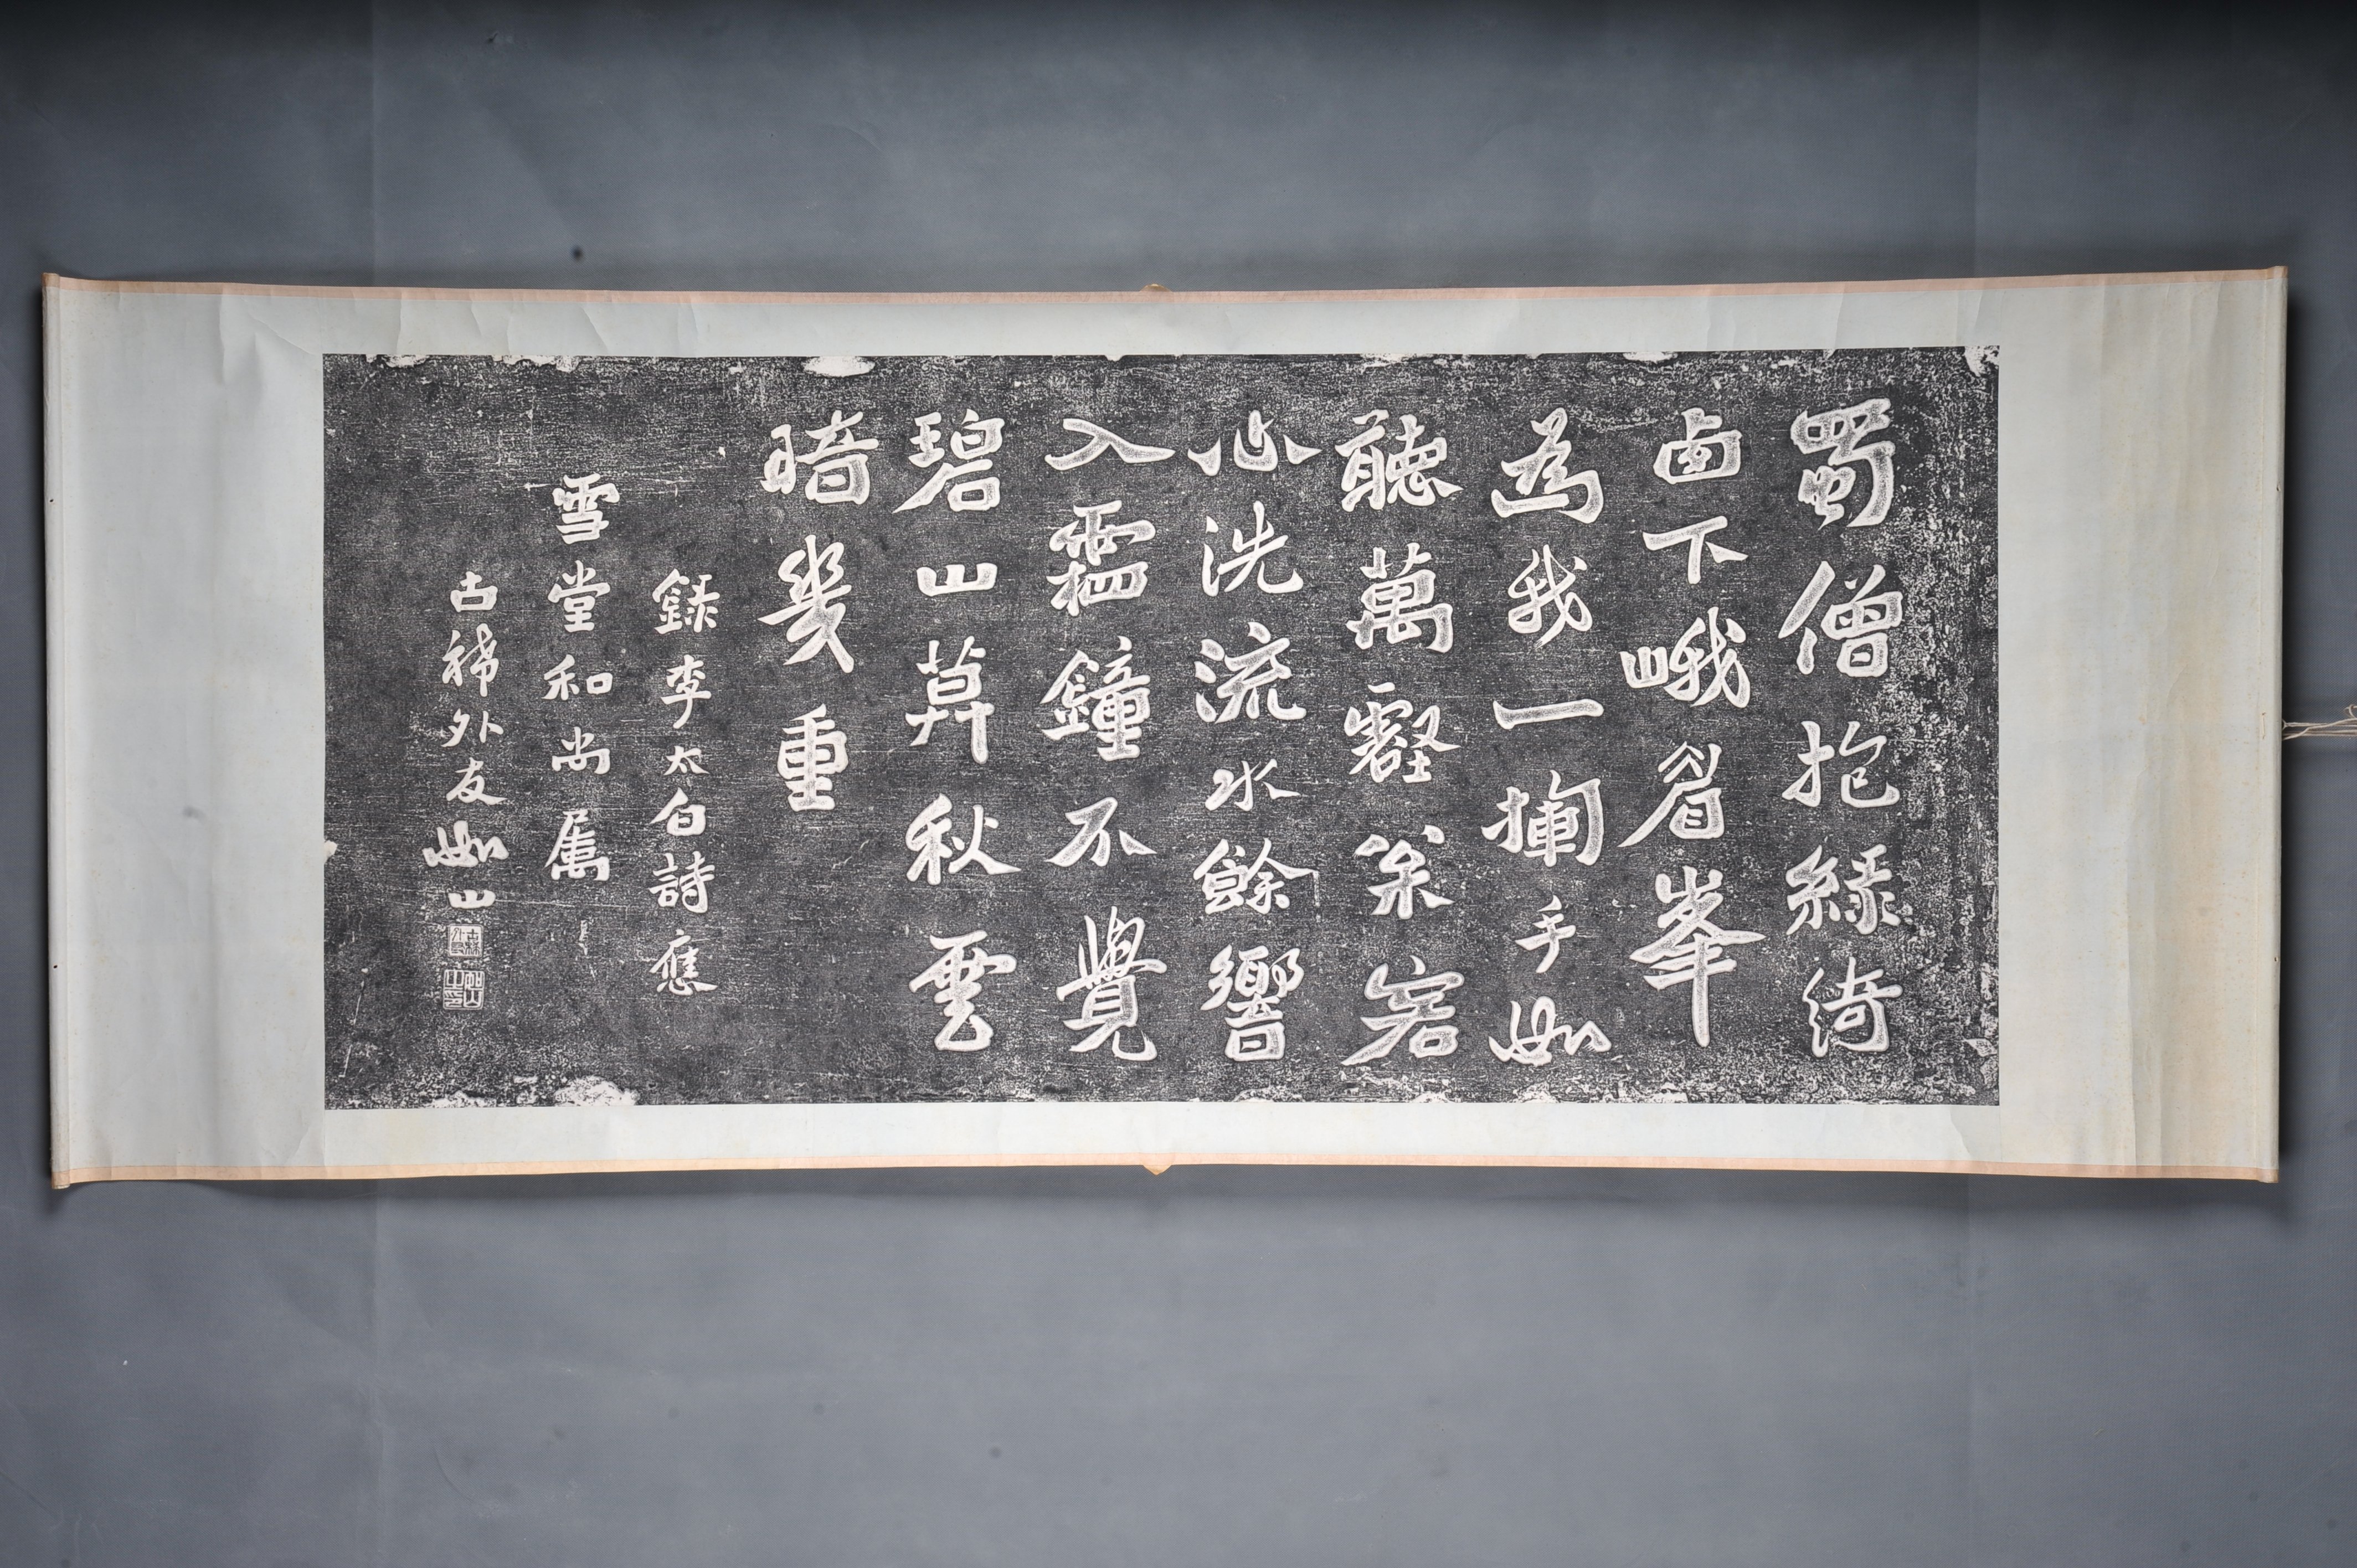 蜀僧抱綠綺
卥下峨眉峯
為我一揮手如
聽萬壑

心洗流水餘響
入霜鐘不覺
碧山莫秋雲
暗幾重
錄李太白詩應
雪堂和尚屬
古稀外友如山